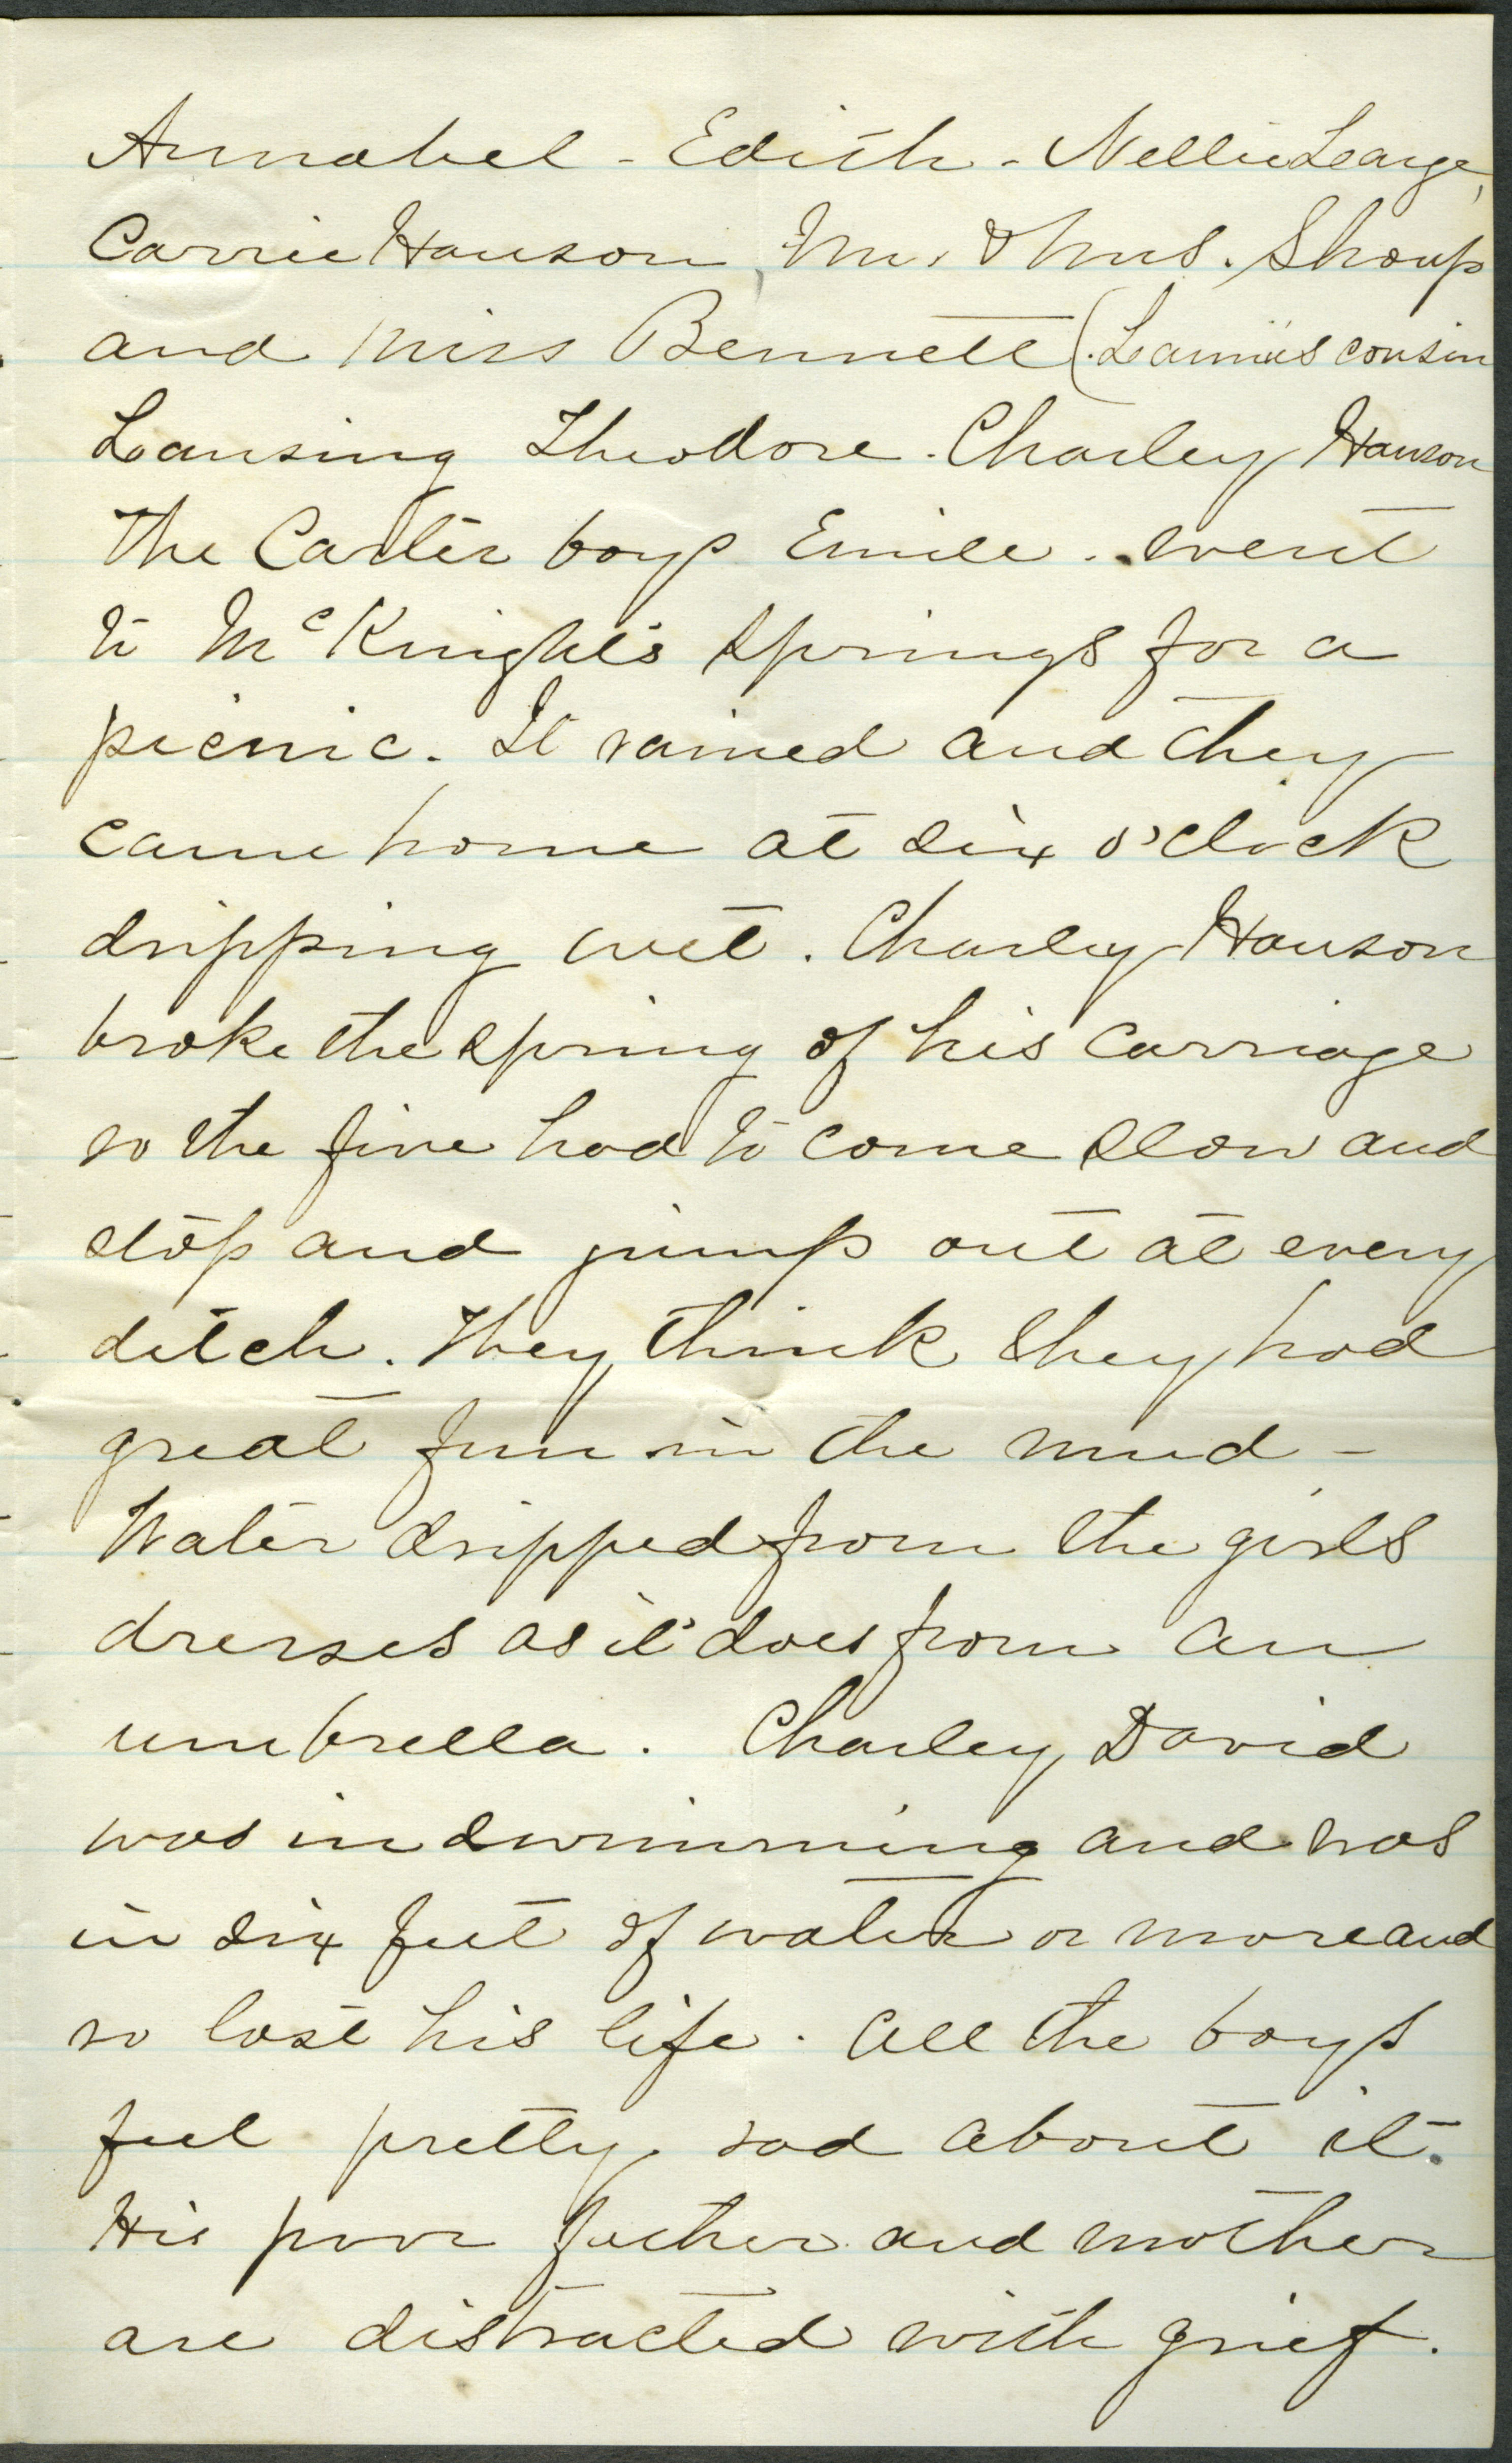 Annabel - Edith - Nellie Learge,
Carrie Hanson, Mr. & Mrs. Shoup
and Miss Bennett (Lannie's cousin
Lansing Theodore. Charley Hanson
The Carter boys Emile. went
to McKnight's springs for a
picnic. It rained and they
came home at six o'clock
dripping wet. Charley Hanson
broke the spring of his carriage
so the five had to come slow and
stop and jump out at every
ditch. They think they had
great fun in the mud -
Water dripped from the girls
dresses as it does from an
umbrella. Charley David
was in swimming and was
in six feet of water or more and
so lost his life. All the boys
feel pretty sad about it.
His poor father and mother
are distracted with grief.